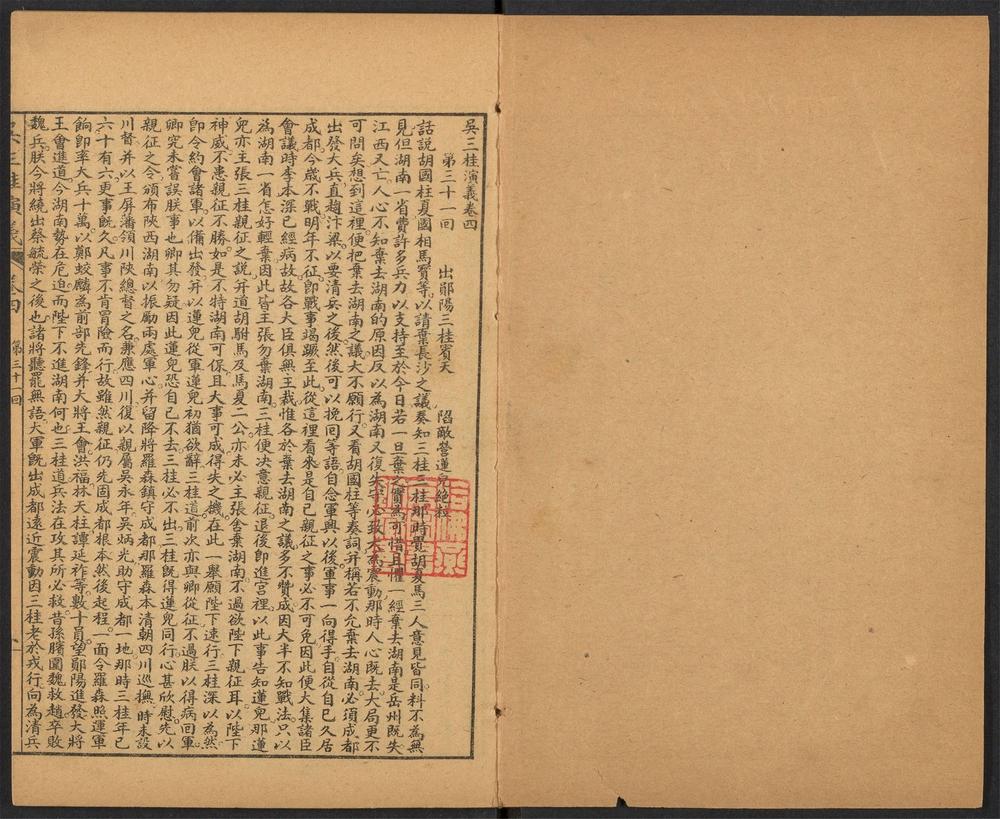 吳三桂演義卷四
第三十一回　出鄖陽三桂賓天　陷敵營蓮兒絕粒
話說胡國柱夏國相馬寶等以請棄長沙之議奏知三桂三桂那時覺胡夏馬三人意見皆同料不為無
見但湖南一省費許多兵力以支持至於今日若一旦棄之實為可惜且懼一經棄去湖南是岳州既失
江西又亡人心不知棄去湖南的原因反以為湖南又復失守必致大為震動那時人心既去大局更不
可問矣想到這裡便把棄去湖南之議大不願行又看胡國柱等奏詞并稱若不允棄去湖南必須成都
出發大兵直趨汴梁以要清兵之後然後可以挽回等語自念軍興以後軍事一向得手自從自己久居
成都今歲不戰明年不征即戰事竭蹶至此從這裡看來是自己親征之事必不可免因此便大集諸臣
會議時李本深已經病故故各大臣俱無主裁惟各於棄去湖南之議多不贊成因大半不知戰法只以
為湖南一省怎好輕棄因此皆主張勿棄湖南三桂便決意親征退後即進宮裡以此事告知蓮兒那蓮
兒亦主張三桂親征之說并道胡駙馬及馬夏二公亦未必主張舍棄湖南不過欲陛下親征耳以陛下
神威不患親征不勝如是不特湖南可保且大事可成得失之機在此一舉願陛下速行三桂深以為然
即令約會諸軍以備出發并以蓮兒從軍蓮兒初猶欲辭三桂道前次亦與卿從征不過朕以得病回軍
卿究未嘗誤朕事也卿其勿疑因此蓮兒恐自己不去三桂必不出三桂既得蓮兒同行心甚欣慰先以
親征之令頒布陝西湖南以振勵兩處軍心并留降將羅森鎮守成都那羅森本清朝四川巡撫時未設
川督并以王屏藩領川陝總督之名兼應四川復以親屬吳永年吳炳光助守成都一地那時三桂年已
六十有六更事既久凡事不肯冒險而行故雖然親征仍先固成都根本然後起程一面令羅森照運軍
餉即率大兵十萬以鄭蛟麟為前部先鋒并大將王會洪福林天柱譚延祚等數十員望鄖陽進發大將
王會進道今湖南勢在危迫而陛下不進湖南何也三桂道兵法在攻其所必救昔孫臏圍魏救趙卒敗
魏兵朕今將繞出蔡毓榮之後也諸將聽罷無語大軍既出成都遠近震動因三桂老於戎行向為清兵
吳三桂演義　卷四　第三十一回　一